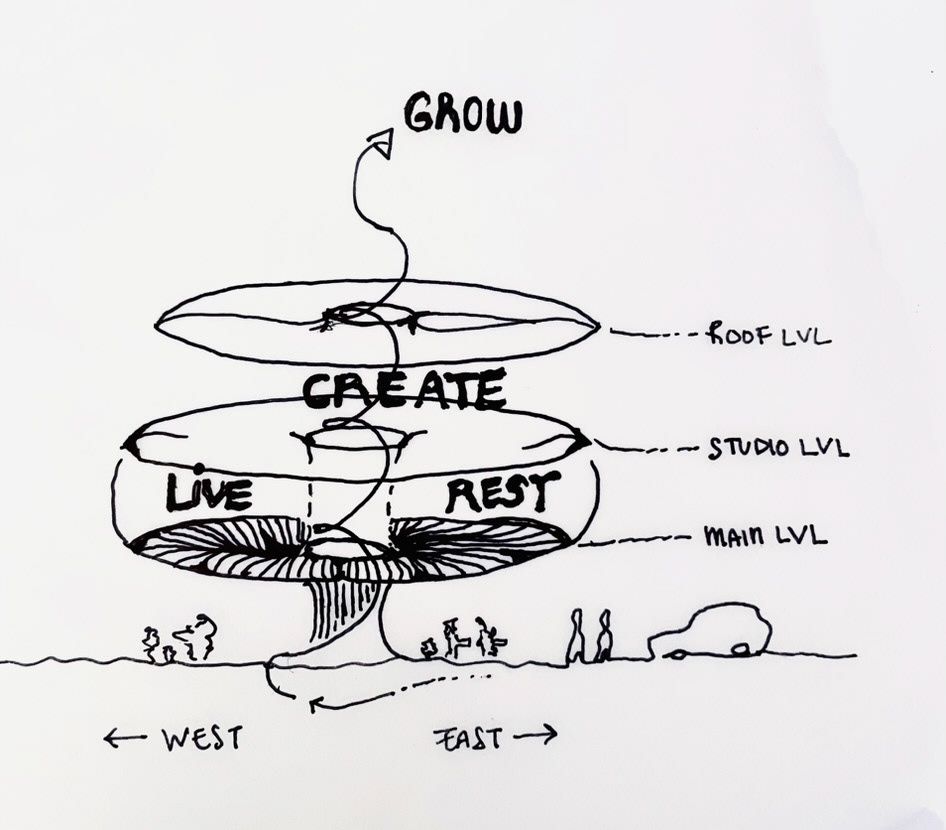 GROW
ROOF LVL
CREATE
STUDIO LVL
LIVE
REST
MAIN LVL
← WEST
EAST →